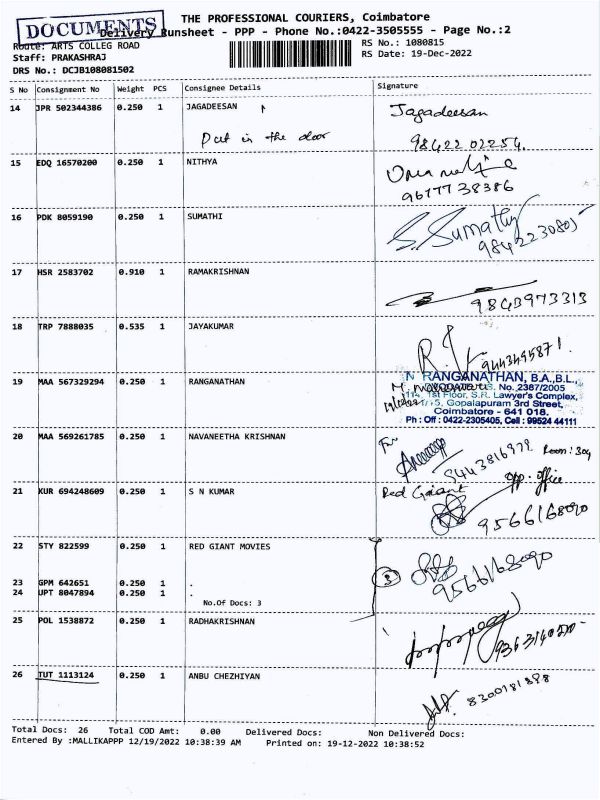 DOCUMENTS
THE PROFESSIONAL COURIERS, Coimbatore
Delivery Runsheet - PPP - Phone No.:0422-3505555 - Page No.:2
Route: ARTS COLLEG ROAD
RS No.: 1080815
Staff: PRAKASHRAJ
RS Date: 19-Dec-2022
DRS No.: DCJB108081502
S No Consignment No Weight PCS Consignee Details Signature
14 JPR 502344386 0.250 1 JAGADEESAN Jagadeesan
Put in the door 98422 02254.
15 EDQ 16570200 0.250 1 NITHYA
9677738386
16 PDK 8059190 0.250 1 SUMATHI S. Sumathy
9842230805
17 HSR 2583702 0.910 1 RAMAKRISHNAN
9843973313
18 TRP 7888035 0.535 1 JAYAKUMAR
9443495871.
19 MAA 567329294 0.250 1 RANGANATHAN N RANGANATHAN, B.A.,B.L.,
No. 2387/2005
114, 1st Floor, S.R. Lawyer's Complex,
Gopalapuram 3rd Street,
Coimbatore - 641 018.
Ph : Off : 0422-2305405, Cell : 99524 44111
20 MAA 569261785 0.250 1 NAVANEETHA KRISHNAN For
Room: 309
opp. office
21 KUR 694248609 0.250 1 S N KUMAR Red Giant
9566168090
22 STY 822599 0.250 1 RED GIANT MOVIES
3 9566168090
23 GPM 642651 0.250 1 .
24 UPT 8047894 0.250 1 .
No.Of Docs: 3
25 POL 1538872 0.250 1 RADHAKRISHNAN
26 TUT 1113124 0.250 1 ANBU CHEZHIYAN
8300181898
Total Docs: 26 Total COD Amt: 0.00 Delivered Docs: Non Delivered Docs:
Entered By :MALLIKAPPP 12/19/2022 10:38:39 AM Printed on: 19-12-2022 10:38:52